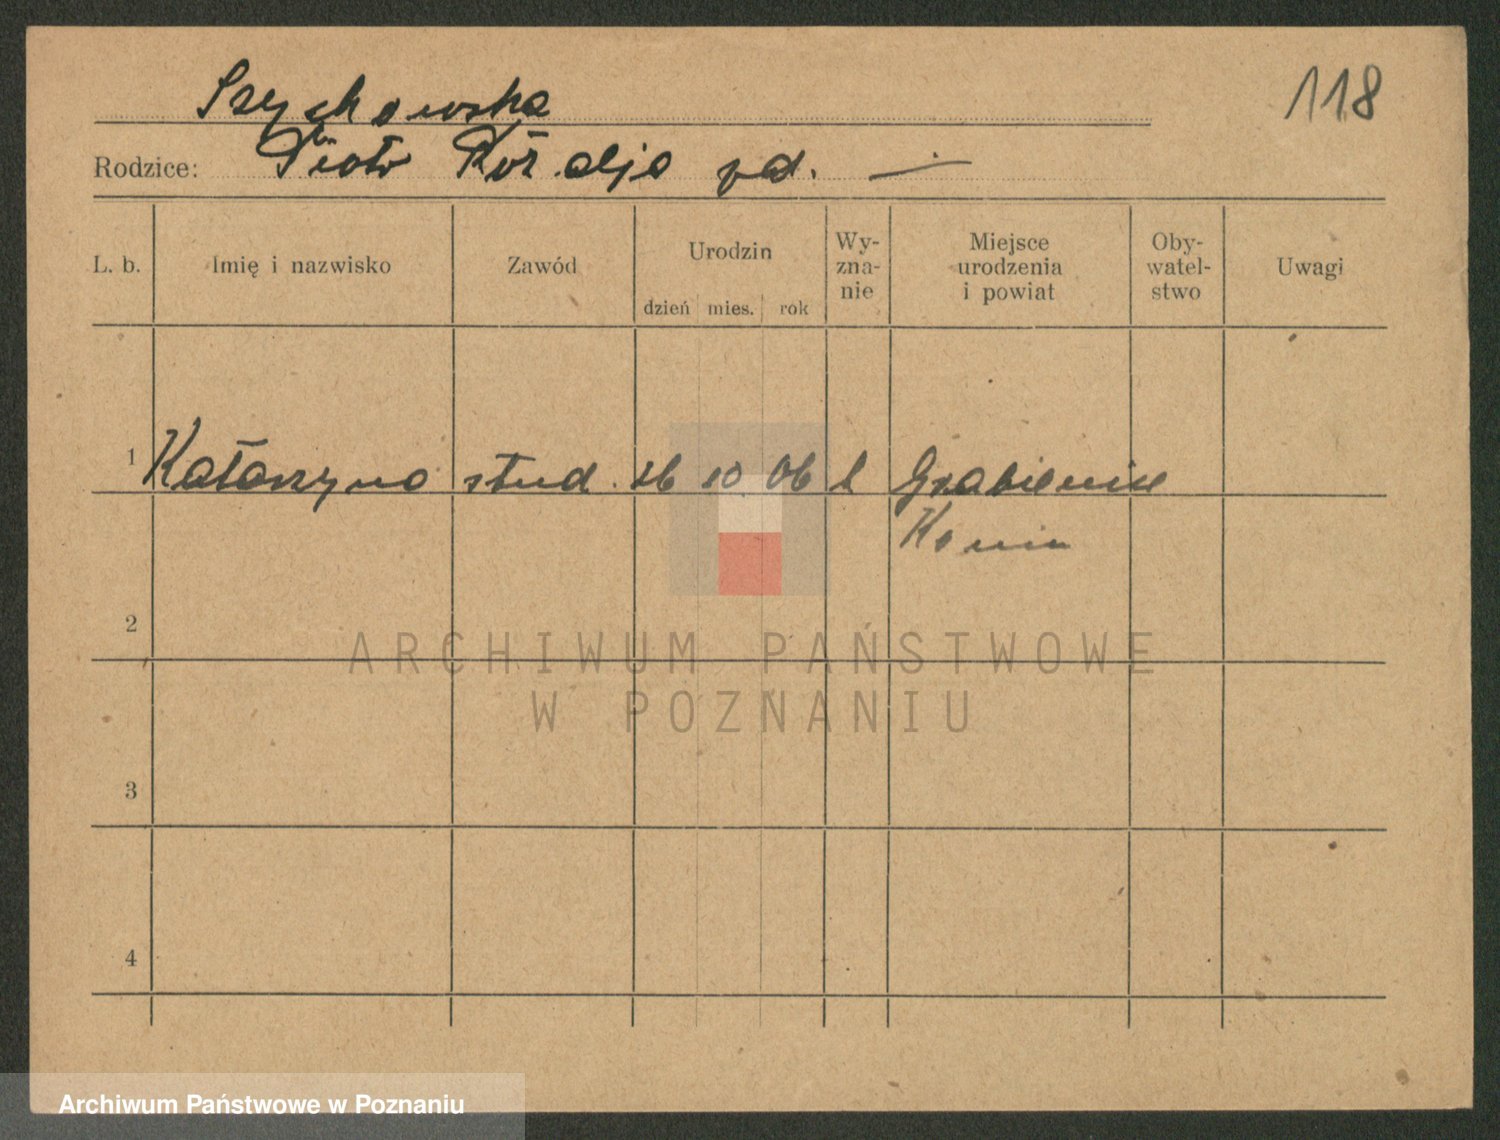 Szychowska
118
Rodzice: Piotr Rozalja zd. —
L. b. Imię i nazwisko Zawód Urodzin dzień mies. rok Wy-zna-nie Miejsce urodzenia i powiat Oby-watel-stwo Uwagi
1 Katarzyna stud. 26 10 06 k Grabienice
Konin
2
ARCHIWUM PAŃSTWOWE
W POZNANIU
3
4
Archiwum Państwowe w Poznaniu